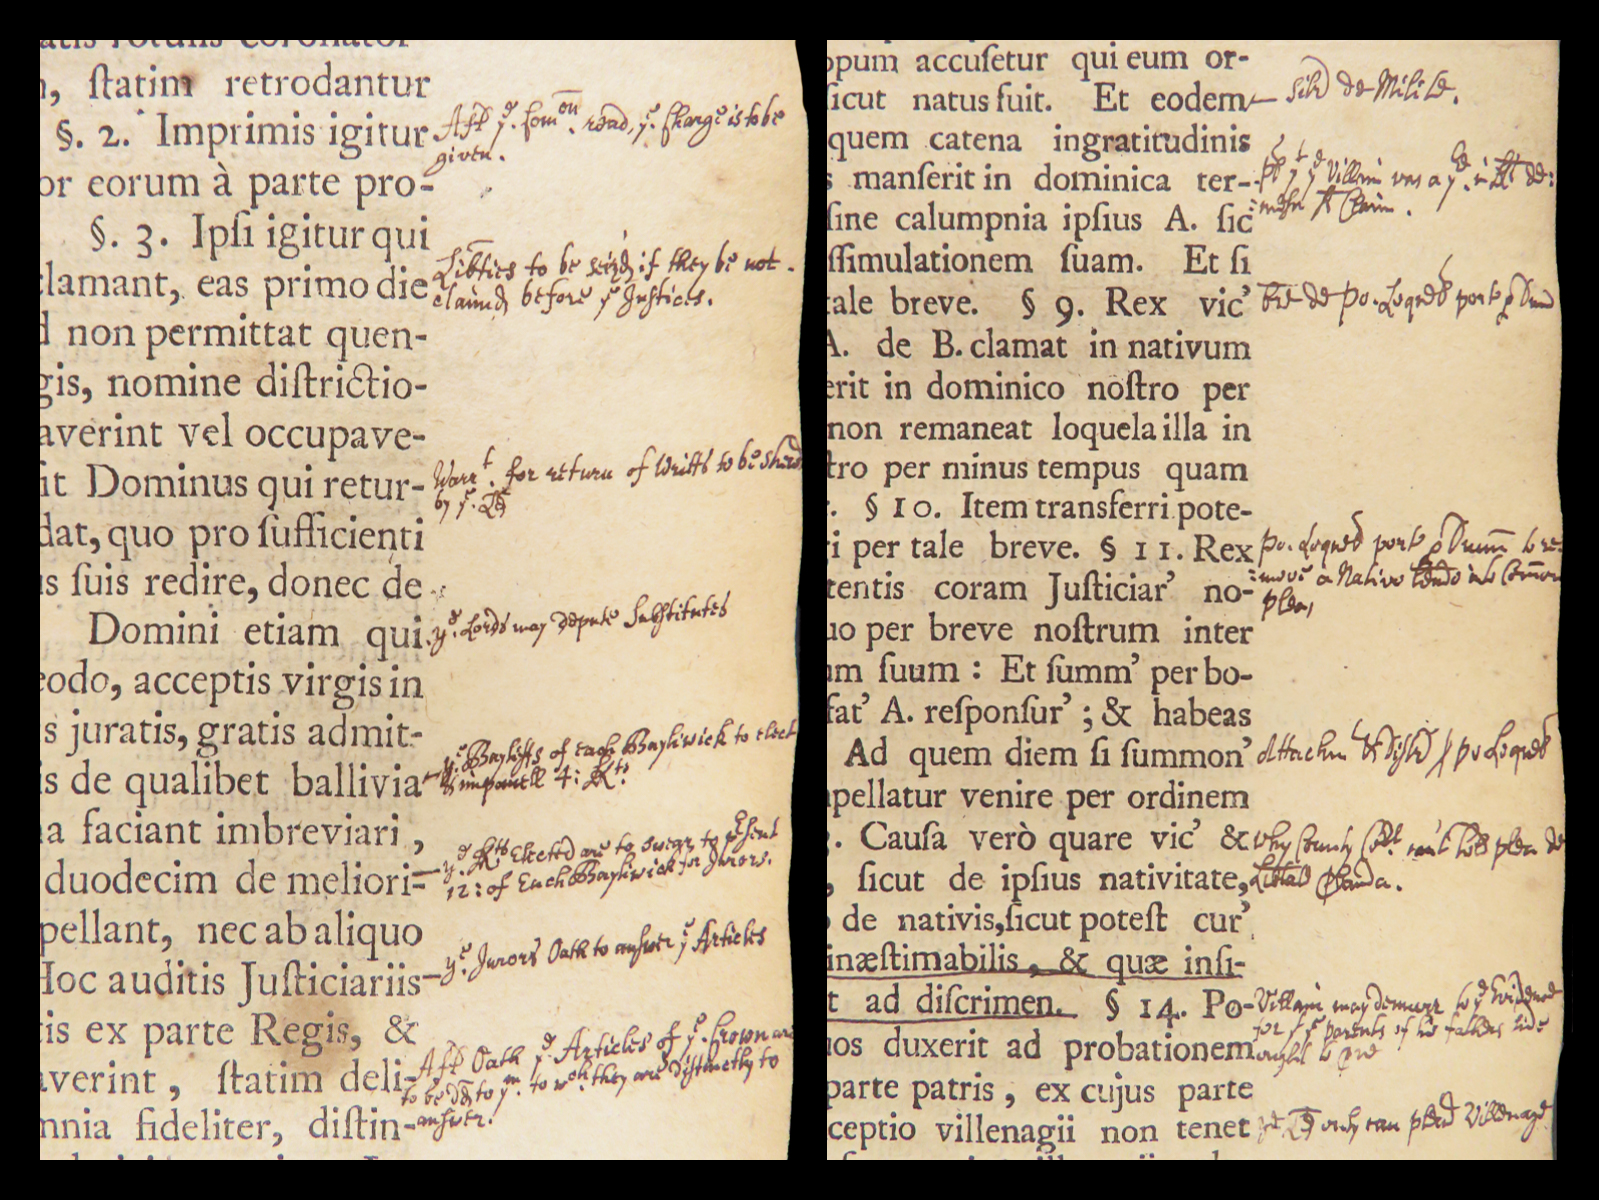 atis rotulis coronator
, ſtatim retrodantur
§. 2. Imprimis igitur
or eorum à parte pro-
§. 3. Ipſi igitur qui
clamant, eas primo die
d non permittat quen-
gis, nomine diſtrictio-
averint vel occupave-
it Dominus qui retur-
dat, quo pro ſufficienti
is ſuis redire, donec de
Domini etiam qui
eodo, acceptis virgis in
s juratis, gratis admit-
is de qualibet ballivia
a faciant imbreviari,
duodecim de meliori-
pellant, nec ab aliquo
Hoc auditis Juſticiariis
tis ex parte Regis, &
averint, ſtatim deli-
mnia fideliter, diſtin-
Aft yᵉ. Comᵒⁿ. read, yᵉ. Charge is to be
given.
Libties to be seizd if they be not
claimd before yᵉ Justices.
Warrᵗ. for return of Writts to be shewd
by yᵉ. Ld
yᵉ. Lords may depute Substitutes
yᵉ. Bayliffs of each Baylywick to elect
& impanell 4: Kᵗˢ
yᵉ. Kᵗˢ Elected are to swear to pſent
12: of Each Baylywick for Jurors.
yᵉ. Jurors Oath to answer yᵉ Articles
Aft Oath yᵉ. Articles of yᵉ. Crown are
to be dd to yᵐ. to wᶜʰ they are distinctly to
answer.
opum accuſetur qui eum or-
ſicut natus fuit. Et eodem
quem catena ingratitudinis
s manſerit in dominica ter-
ſine calumpnia ipſius A. ſic
ſſimulationem ſuam. Et ſi
tale breve. § 9. Rex vic’
A. de B. clamat in nativum
erit in dominico noſtro per
non remaneat loquela illa in
tro per minus tempus quam
. § 10. Item transferri pote-
i per tale breve. § 11. Rex
tentis coram Juſticiar’ no-
uo per breve noſtrum inter
um ſuum : Et ſumm’ per bo-
fat’ A. reſponſur’ ; & habeas
Ad quem diem ſi ſummon’
pellatur venire per ordinem
. Cauſa verò quare vic’ &
, ſicut de ipſius nativitate,
de nativis, ſicut poteſt cur’
inæſtimabilis, & quæ inſi-
t ad diſcrimen. § 14. Po-
uos duxerit ad probationem
parte patris, ex cujus parte
ceptio villenagii non tenet
de Milite.
Villein was a
Claim.
de po. Loqued
po. Loqued
move a Nativo into Comon
pleas
Attachm & Distr po Loqued
why County plea de
Villain may demurr to
for yᵉ parents of his fathers side
ought to
Ld only can plead Villenage